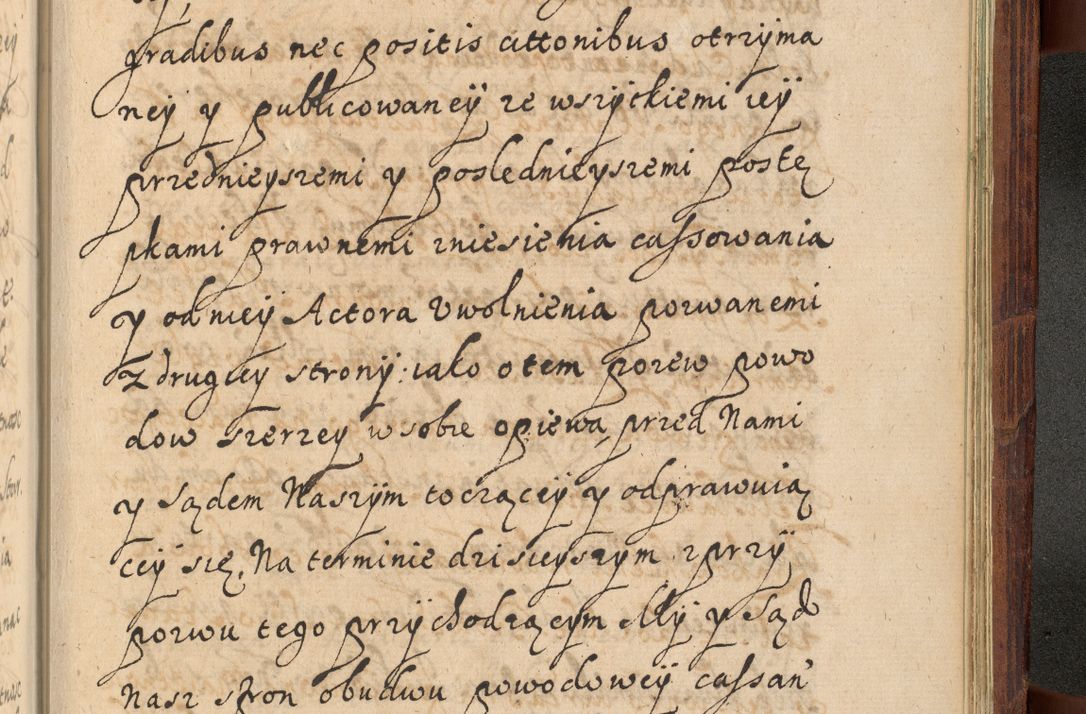 gradibus nec positis cittonibus otrzÿma
neÿ y publicowaneÿ ze wszÿtkiemi ieÿ
przednieyszemi y poslednieyszemi postę
pkami prawnemi zniesienia cassowania
y od nieÿ Actora Uwolnienia pozwanemi
Z drugieÿ stronÿ: iako o tem pozew powo
dow szerzey w sobie opiewa, przed Nami
y Sądem Naszÿm toczącej y odprawuią
ceÿ się. Na terminie dzisieÿszym z przÿ
pozwu tego przÿchodzącym Mÿ y Sąd
Nasz stron obudwu powodoweÿ cassan